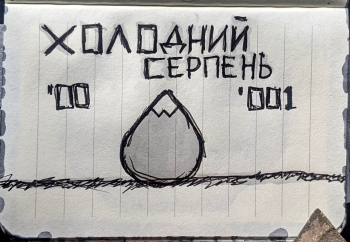 ХОЛОДНИЙ
СЕРПЕНЬ
'00 '001